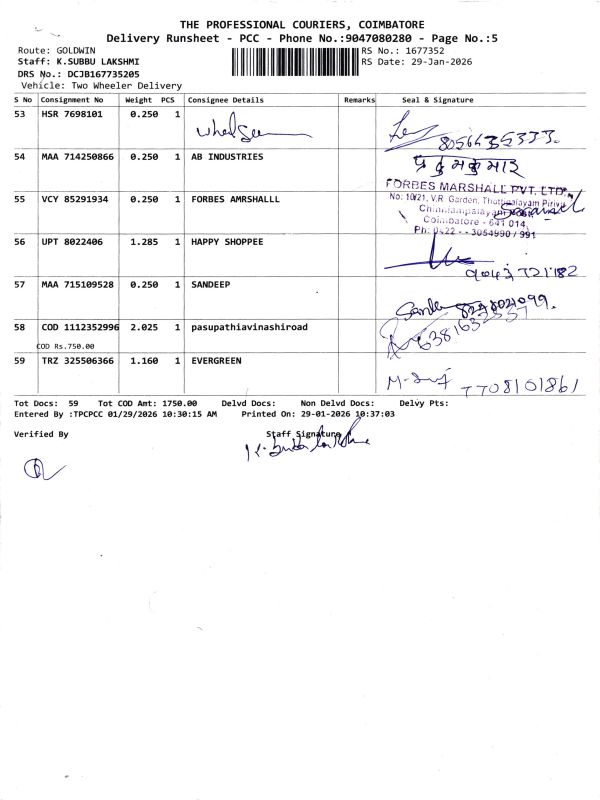 THE PROFESSIONAL COURIERS, COIMBATORE
Delivery Runsheet - PCC - Phone No.:9047080280 - Page No.:5
Route: GOLDWIN RS No.: 1677352
Staff: K.SUBBU LAKSHMI RS Date: 29-Jan-2026
DRS No.: DCJB167735205
Vehicle: Two Wheeler Delivery
S No Consignment No Weight PCS Consignee Details Remarks Seal & Signature
53 HSR 7698101 0.250 1
8056435333.
54 MAA 714250866 0.250 1 AB INDUSTRIES
55 VCY 85291934 0.250 1 FORBES AMRSHALLL
FORBES MARSHALL PVT. LTD.
No: 10/21, V.R. Garden, Thottipalayam Pirivu
Chinniampalayam
Coimbatore - 641 014,
Ph: 0422 - 3054990 / 991
56 UPT 8022406 1.285 1 HAPPY SHOPPEE
9043721182
57 MAA 715109528 0.250 1 SANDEEP
58 COD 1112352996 2.025 1 pasupathiavinashiroad
COD Rs.750.00
59 TRZ 325506366 1.160 1 EVERGREEN
7708101861
Tot Docs: 59 Tot COD Amt: 1750.00 Delvd Docs: Non Delvd Docs: Delvy Pts:
Entered By :TPCPCC 01/29/2026 10:30:15 AM Printed On: 29-01-2026 10:37:03
Verified By Staff Signature